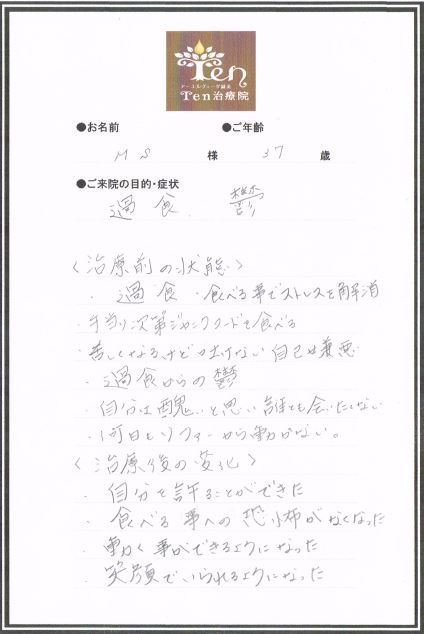 Ten
アーユルヴェーダ鍼灸
Ten治療院
●お名前 ●ご年齢
M S 様 37 歳
●ご来院の目的・症状
過食 鬱
〈治療前の状態〉
・過食 ・食べる事でストレスを解消
・手当り次第ジャンクフードを食べる
・苦しくなるけど吐けない 自己嫌悪
・過食からの鬱
・自分は醜いと思い誰とも会いたくない
・何日もソファーから動かない。
〈治療後の変化〉
・自分を許ることができた
・食べる事への恐怖がなくなった
・動く事ができるようになった
・笑顔でいられるようになった